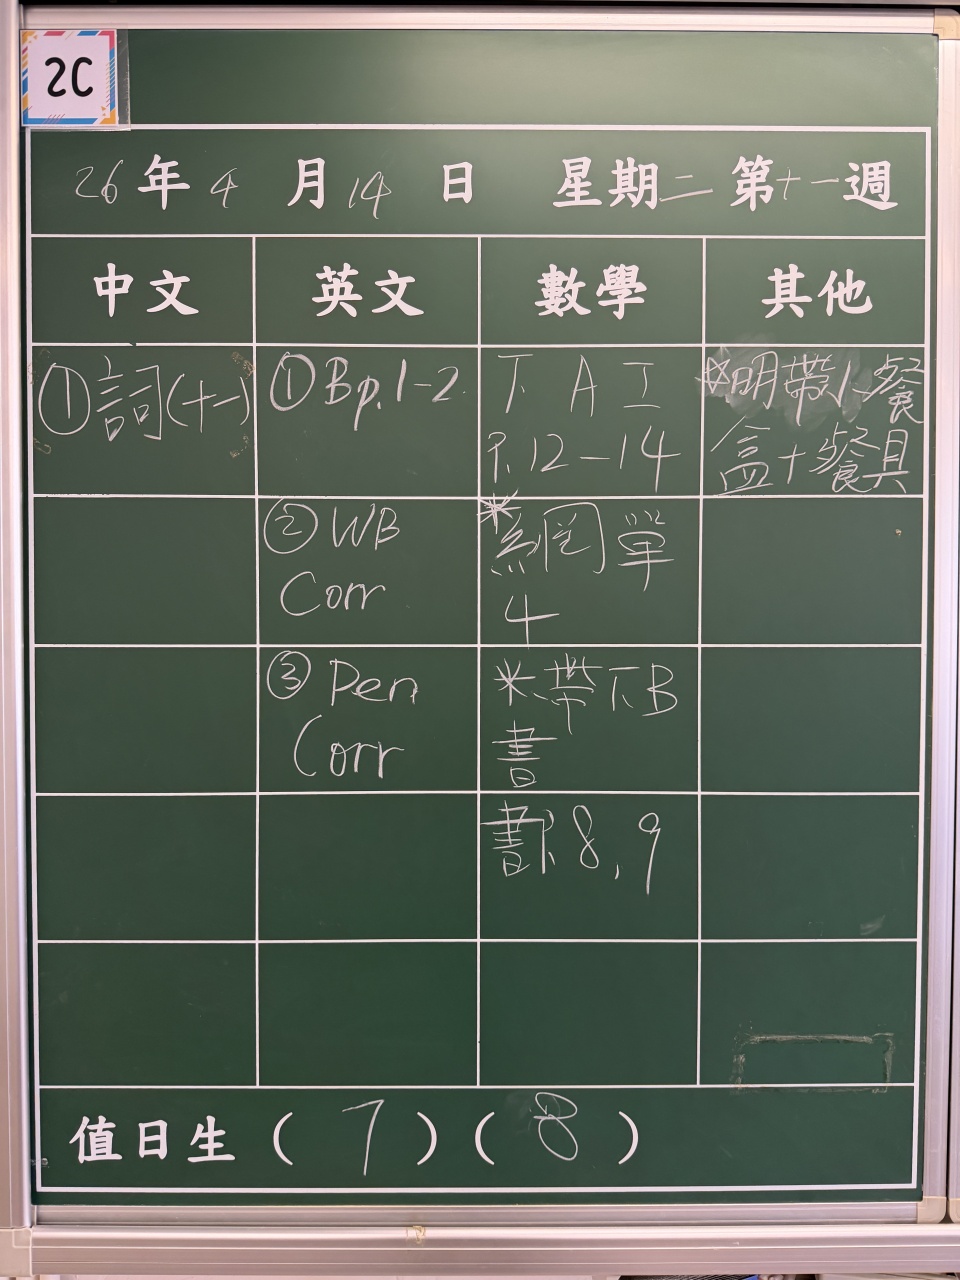 2C
26年4月14日 星期二 第十一週
中文 英文 數學 其他
①詞(十一)
①Bp.1-2
②WB
Corr
③Pen
Corr
下 A 工
P.12-14
*網單
4
*帶下B
書
書P.8,9
*明帶餐
盒+餐具
值日生(7)(8)